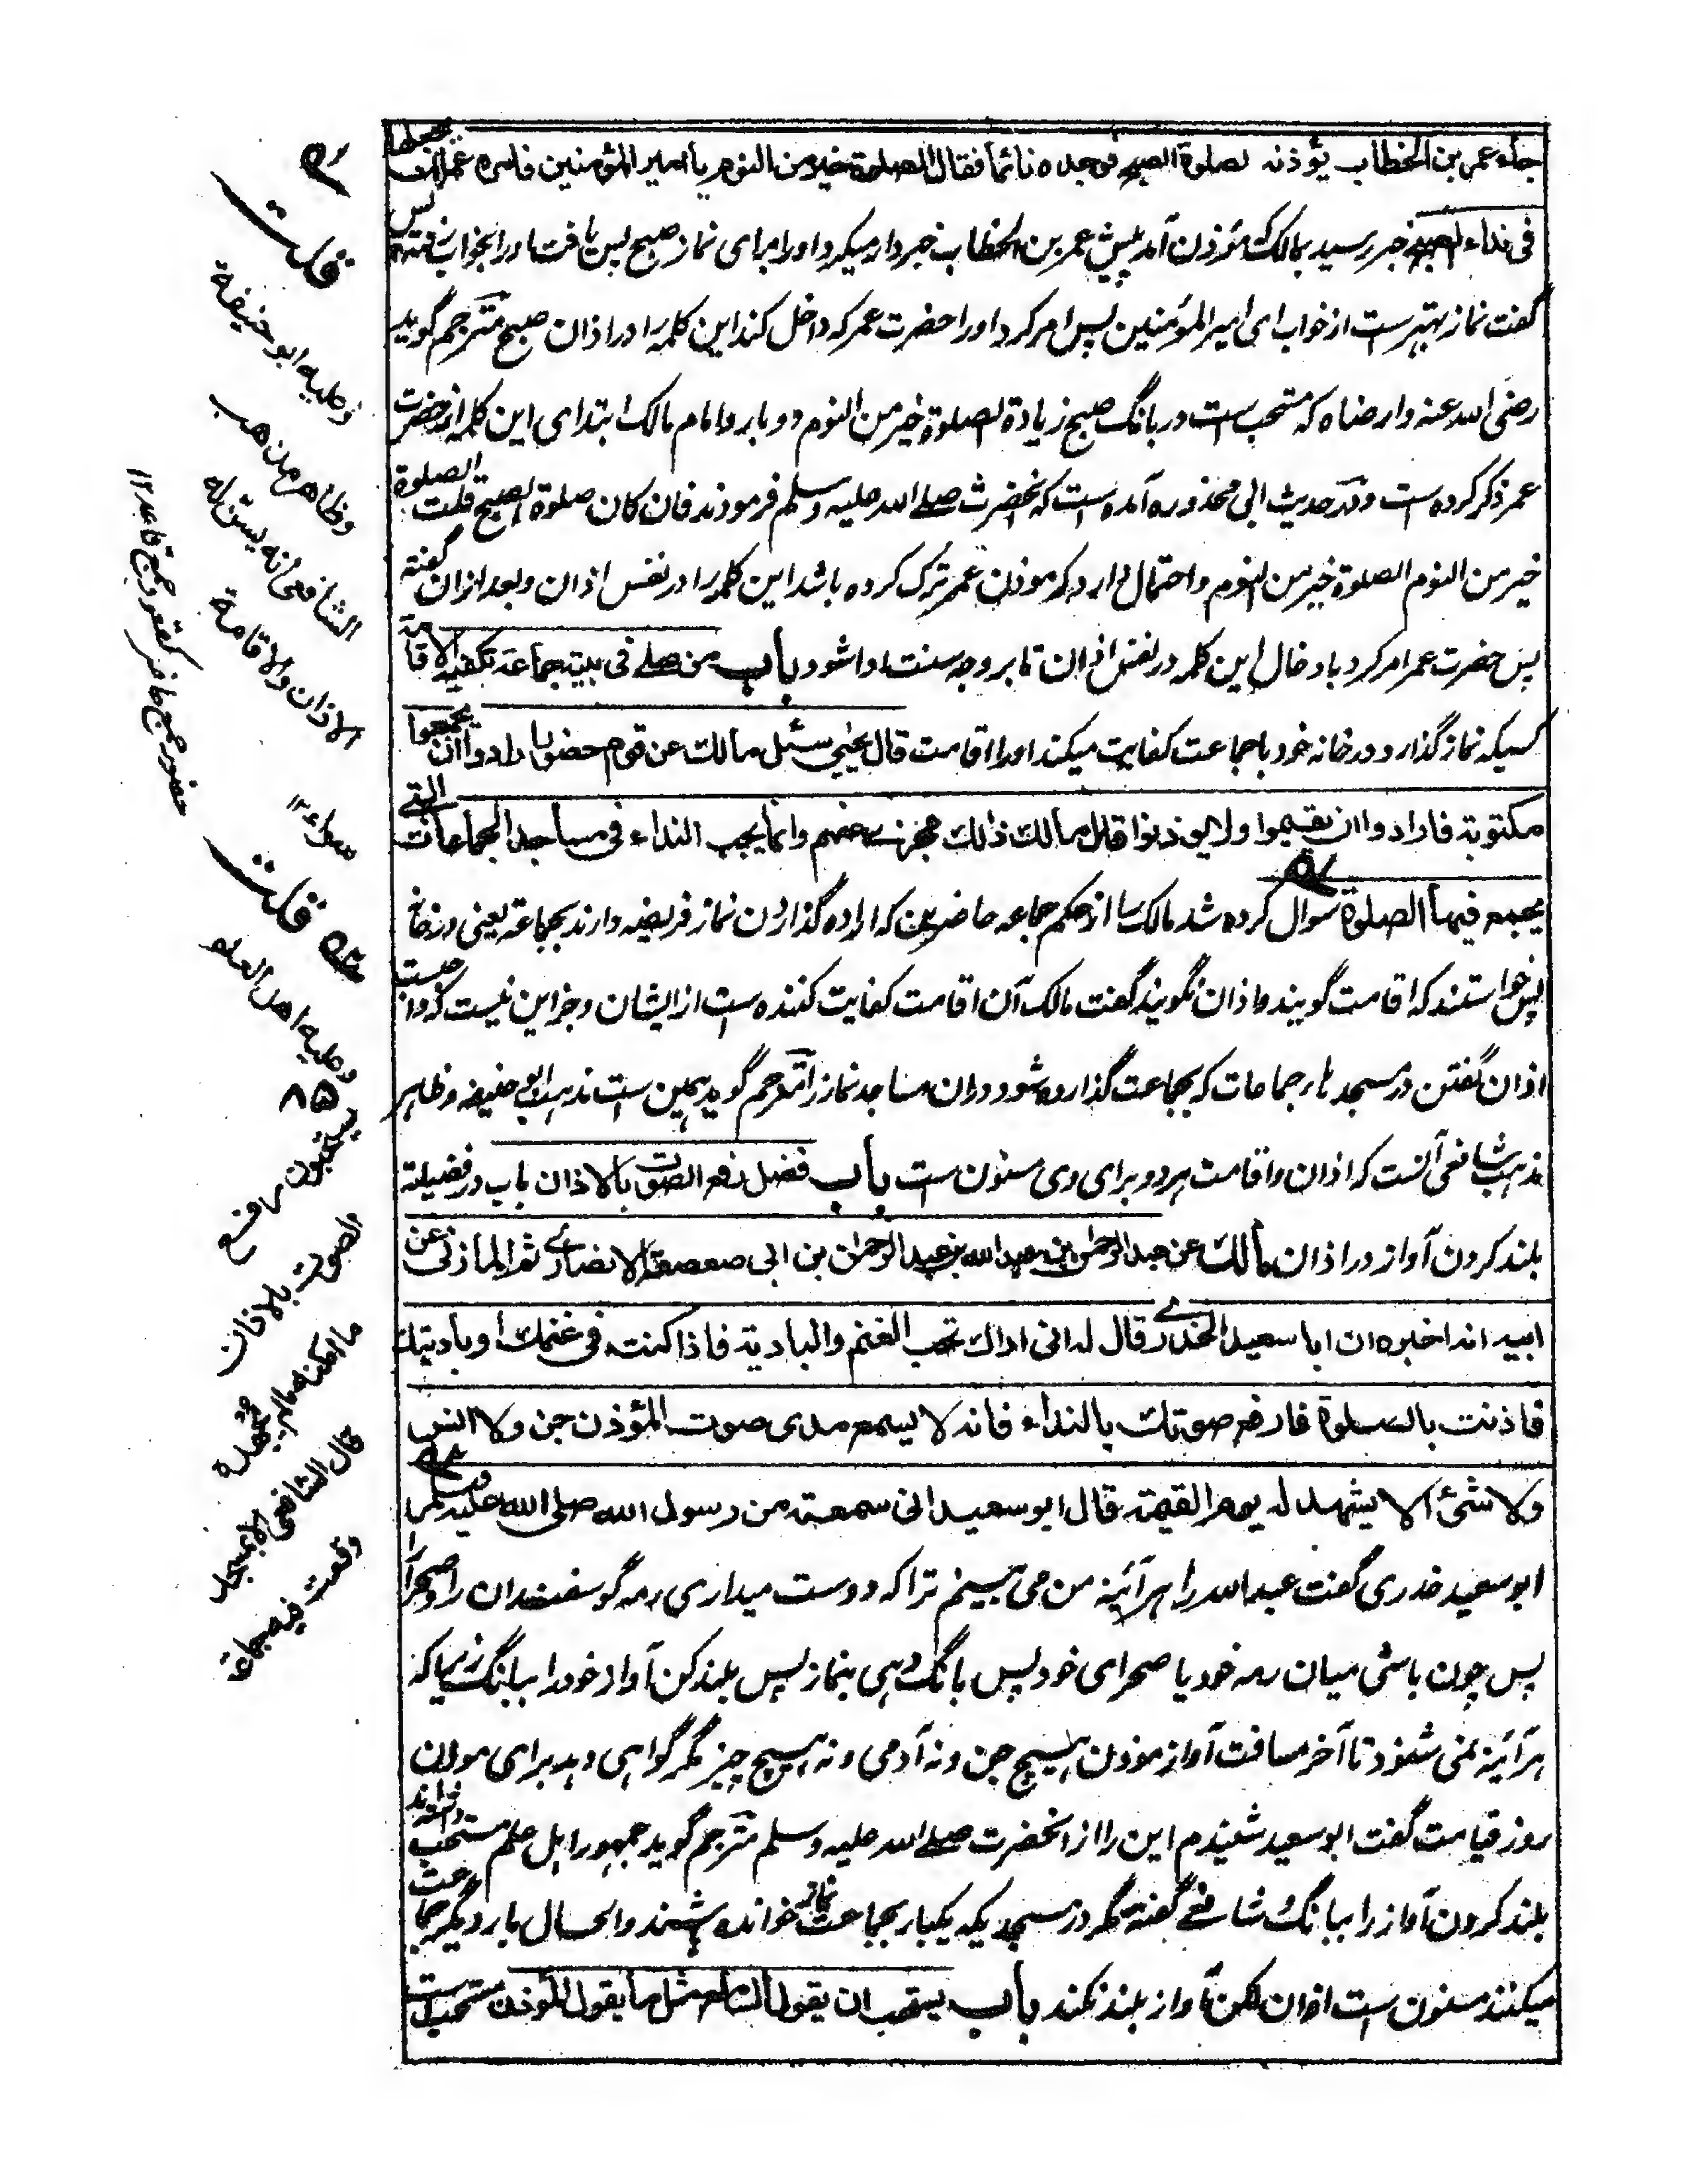 جاء عمر بن الخطاب یؤذنه لصلوة الصبح فوجده نائما فقال الصلوة خیر من النوم یا امیر المؤمنین فامره عمر ان یجعلها
فی نداء الصبح خبر رسید بمالک که مؤذن آمد پیش عمر بن الخطاب خبردار میکرد او را برای نماز صبح پس یافت او را بخواب رفته پس
گفت نماز بهتر ست از خواب ای امیر المؤمنین پس امر کرد او را حضرت عمر که داخل کند این کلمه را در اذان صبح مترجم گوید
رضی الله عنه وارضاه که مستحب ست در بانگ صبح زیادة الصلوة خیر من النوم دو بار و امام مالک ابتدای این کلمه از حضرت
عمر ذکر کرده ست و در حدیث ابی محذوره آمده ست که آنحضرت صلے الله علیه وسلم فرمودند فان کان صلوة الصبح قلت الصلوة
خیر من النوم الصلوة خیر من النوم و احتمال دارد که موذن عمر ترک کرده باشد این کلمه را در نفس اذان و بعد ازان گفته
پس حضرت عمر امر کرد باد خال این کلمه در نفس اذان تا بر وجه سنت ادا شود باب من صلے فی بیته جماعة تکفیه الاقامة
کسیکه نماز گذارد در خانه خود با جماعت کفایت میکند او را اقامت قال یحیی سئل مالک عن قوم حضور ارادوا ان یجمعوا
مکتوبة فارادوا ان یقیموا ولا یوذنوا قال مالک ذلک مجزے عنهم وانما یجب النداء فی مساجد الجماعات التی
یجمع فیها الصلوة سوال کرده شد مالک را از حکم جماعه حاضرین که اراده گذاردن نماز فریضه دارند بجماعة یعنی در خانه
پس خواستند که اقامت گویند و اذان نگویند گفت مالک آن اقامت کفایت کننده ست از ایشان و جز این نیست که واجب ست
اذان گفتن در مسجد هاء جماعات که بجماعت گذارده شود دران مساجد نماز را مترجم گوید همین ست مذهب ابو حنیفه و ظاهر
مذهب شافعی آنست که اذان و اقامت هر دو برای وی مسنون ست باب فضل رفع الصوت بالاذان باب در فضیلة
بلند کردن آواز در اذان مالک عن عبد الرحمن بن عبد الله بن عبد الرحمن بن ابی صعصعة الانصاری ثم المازنی عن
ابیه انه اخبره ان ابا سعید الخدری قال له انی اراک تحب الغنم والبادیة فاذا کنت فی غنمک او بادیتک
فاذنت بالصلوة فارفع صوتک بالنداء فانه لا یسمع مدی صوت المؤذن جن ولا انس
ولا شئ الا یشهد له یوم القیمة قال ابو سعید انی سمعته من رسول الله صلی الله علیه وسلم
ابو سعید خدری گفت عبد الله را هر آئینه من می بینم ترا که دوست میداری رمه گوسفندان را و صحرا را
پس چون باشی میان رمه خود یا صحرای خود پس بانگ دهی بنماز پس بلند کن آواز خود را ببانگ زیرا که
هر آئینه نمی شنود تا آخر مسافت آواز موذن هیچ جن و نه آدمی و نه هیچ چیز مگر گواهی دهد برای موذن
روز قیامت گفت ابو سعید شنیدم این را از آنحضرت صلے الله علیه وسلم مترجم گوید جمهور اهل علم مستحب دانسته اند
بلند کردن آواز را ببانگ شافعے گفته مگر در مسجدیکه یکبار بجماعت نماز خوانده شدند والحال بار دیگر جماعت
میکنند مسنون ست اذان لکن آواز بلند نکند باب یستحب ان یقول السامع مثل ما یقول المؤذن مستحب ست
قلت
وعلیه ابو حنیفة
وظاهر مذهب
الشافعی انه یسن له
الاذان والاقامة
حضور جمع حاضر کقعود جمع قاعد ۱۲
سواء ۱۲
قلت
وعلیه اهل العلم
یستحبون رفع
الصوت بالاذان
ما امکنه ما لم یجهده
قال الشافعی الا بمسجد
وقعت فیه جماعة